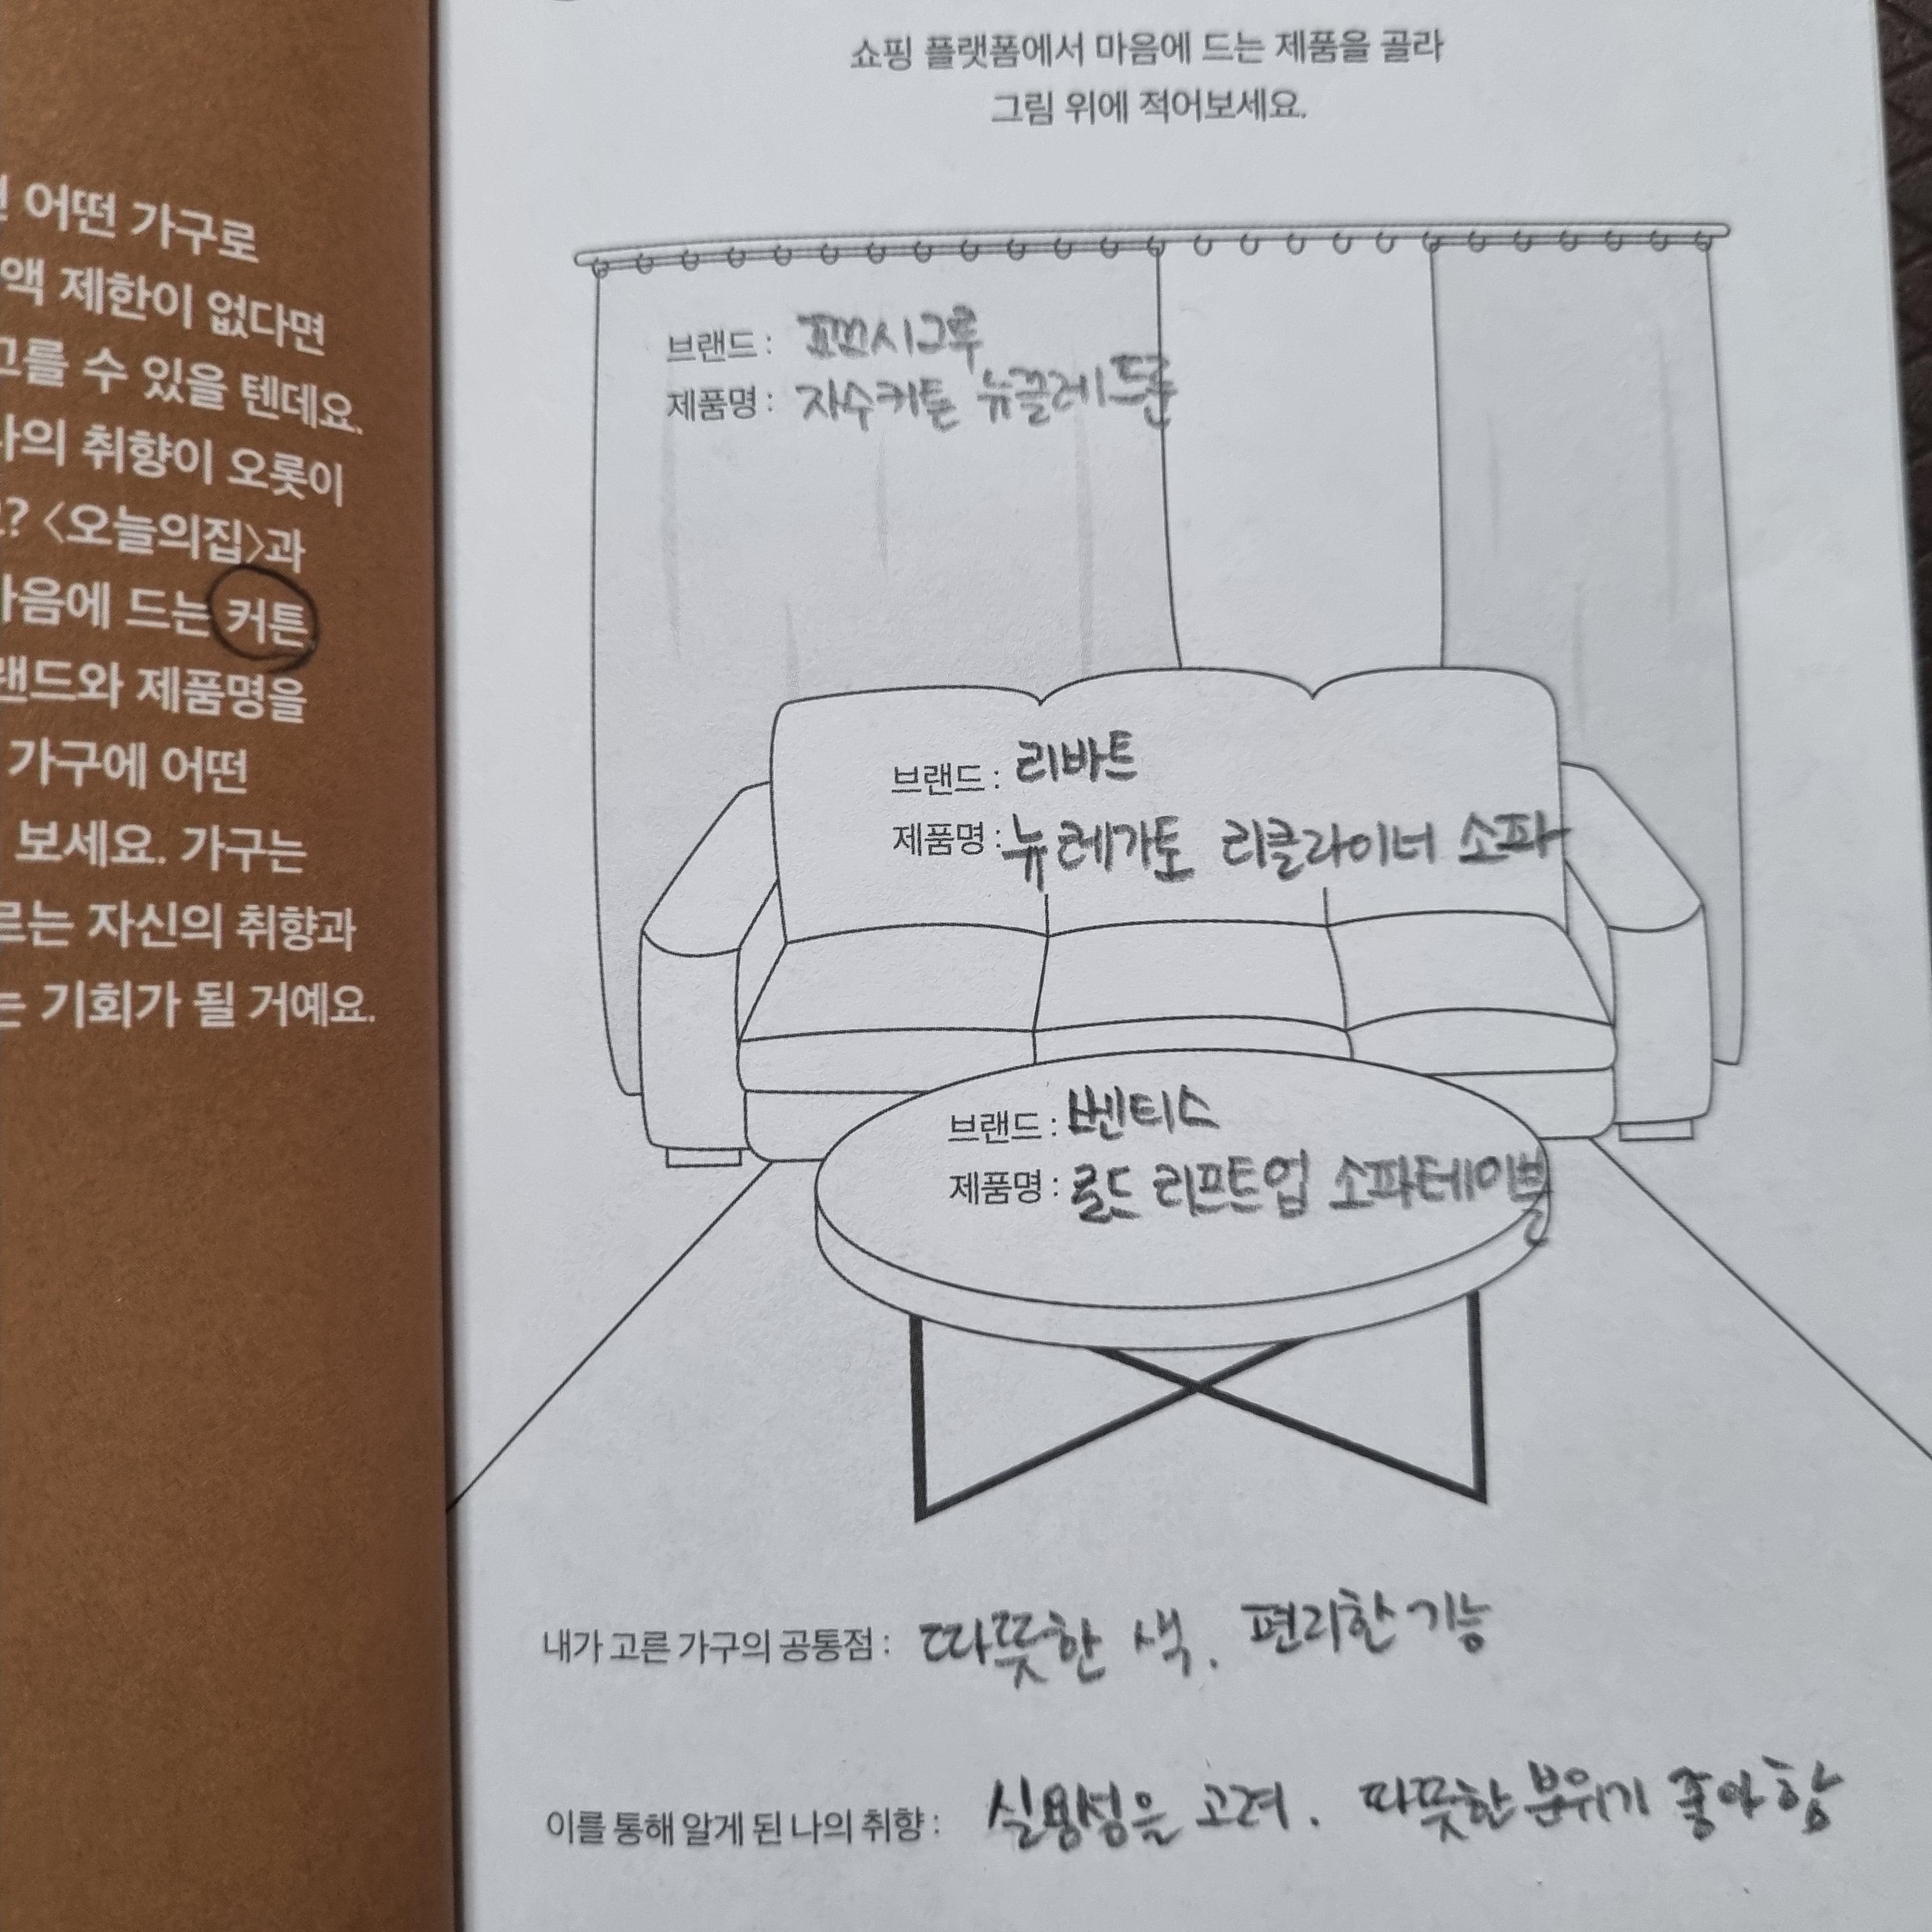 어떤 가구로
액 제한이 없다면
고를 수 있을 텐데요.
나의 취향이 오롯이
? <오늘의집>과
마음에 드는 커튼,
랜드와 제품명을
가구에 어떤
보세요. 가구는
르는 자신의 취향과
는 기회가 될 거예요.
쇼핑 플랫폼에서 마음에 드는 제품을 골라
그림 위에 적어보세요.
브랜드 :
제품명 : 자수커튼
브랜드 : 리바트
제품명 : 뉴 레가토 리클라이너 소파
브랜드 : 벤티스
제품명 : 로드 리프트업 소파테이블
내가 고른 가구의 공통점 : 따뜻한 색. 편리한 기능
이를 통해 알게 된 나의 취향 : 실용성을 고려. 따뜻한 분위기 좋아함